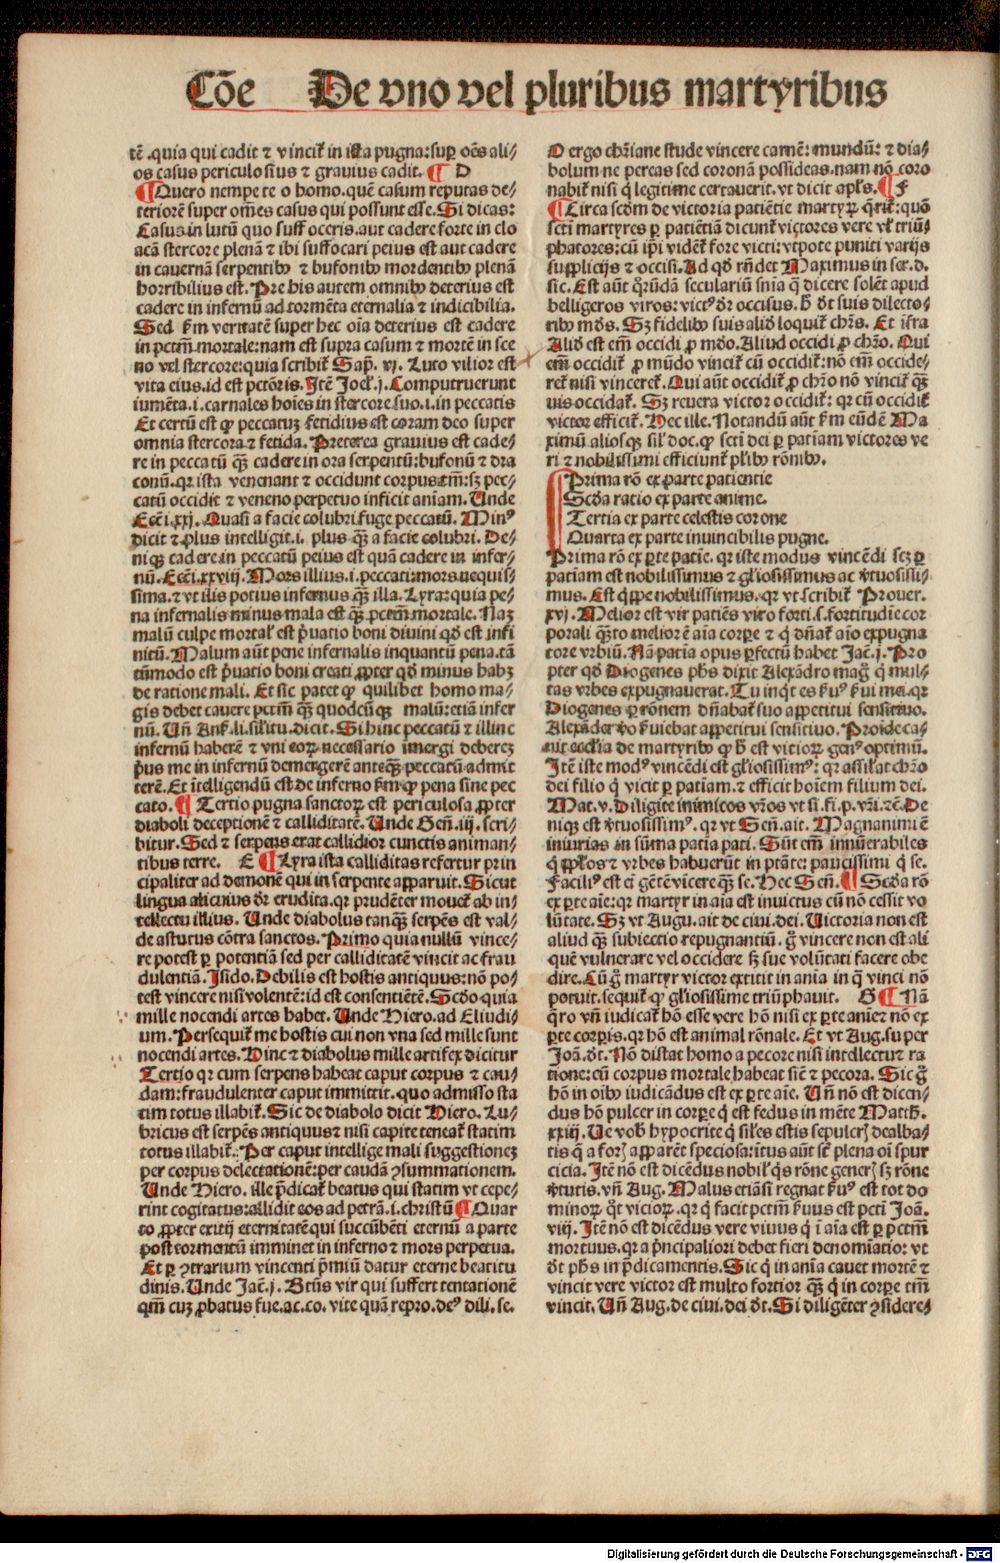 Cōe De vno vel pluribus martyribus
tē .quia qui cadit ⁊ vincit̄ in ista pugna:suꝑ oēs ali⸗
os casus periculosius ⁊ grauius cadit. ¶ D
¶ Quero nempe te o homo.quē casum reputas de⸗
teriorē super om̄es casus qui possunt esse.Si dicas:
Casus in lutū quo suffoceris.aut cadere forte in clo
acā stercore plenā ⁊ ibi suffocari peius est aut cadere
in cauernā serpentibꝰ ⁊ bufonibꝰ mordentibꝰ plenā
horribilius est.Pre his autem omnibꝰ deterius est
cadere in infernū ad tormēta eternalia ⁊ indicibilia.
Sed ẜm veritatē super hec oīa deterius est cadere
in pctm̄ mortale:nam est supra casum ⁊ mortē in sce
no vel stercore:quia scribit̄ Sap̄. vj. Luto vilior est
vita eius.id est pctōris. Itē Joel.j.Computruerunt
iumēta.i.carnales hoīes in stercore suo.i.in peccatis
Et certū est ꝙ peccatuꝫ fetidius est coram deo super
omnia stercora ⁊ fetida.Preterea grauius est cade⸗
re in peccatū qꝫ̄ cadere in ora serpentū:bufonū ⁊ dra
conū.qꝛ ista venenant ⁊ occidunt corpus tm̄:sꝫ pec⸗
catū occidit ⁊ veneno perpetuo inficit aniam. Unde
Ecci.xxj. Quasi a facie colubri fuge peccatū. Minꝰ
dicit ⁊ plus intelligit.i. plus qꝫ̄ a facie colubri. De⸗
niqꝫ cadere in peccatū peius est quā cadere in infer⸗
nū. Ecci.xxviij. Mors illius.i.peccati:mors nequis⸗
sima.⁊ vt ilis potius infernus qꝫ̄ illa. Lyra:quia pe⸗
na infernalis minus mala est qꝫ̄ pctm̄ mortale. Naꝫ
malū culpe mortal̄ est p̄uatio boni diuini qd̄ est infi
nitū. Malum aūt pene infernalis inquantū pena.tā
tūmodo est p̄uatio boni creati ꝓpter qd̄ minus habꝫ
de ratione mali. Et sic patet ꝙ quilibet homo ma⸗
gis debet cauere pctm̄ qꝫ̄ quodcūqꝫ malū:etiā infer
nū. Uñ Ans̄.li.sil̄itu.dicit. Si hinc peccatū ⁊ illinc
infernū haberē ⁊ vni eoꝝ necessario imergi debereꝫ
p̄us me in infernū demergerē anteqꝫ̄ peccatū admit
terē.Et ītelligendū est de inferno ẜm ꝙ pena sine pec
cato. ¶ Tertio pugna sanctoꝝ est periculosa ꝓpter
diaboli deceptionē ⁊ calliditatē. Unde Geñ.iij. scri⸗
bitur.Sed ⁊ serpens erat callidior cunctis animan⸗
tibus terre. E ¶ Lyra ista calliditas refertur prin
cipaliter ad demonē qui in serpente apparuit. Sicut
lingua alicuius dr̄ erudita.qꝛ prudēter mouet̄ ab in⸗
tellectu illius. Unde diabolus tanqꝫ̄ serpēs est val⸗
de astutus cōtra sanctos. Primo quia nullū vince⸗
re potest ꝑ potentiā sed per calliditatē vincit ac frau
dulentiā. Isido. Debilis est hostis antiquus:nō po⸗
test vincere nisi volentē:id est consentiētē. Scd̄o quia
mille nocendi artes habet. Unde Hiero. ad Eliudi⸗
um. Persequit̄ me hostis cui non vna sed mille sunt
nocendi artes. Hinc ⁊ diabolus mille artifex dicitur
Tertio qꝛ cum serpens habeat caput corpus ⁊ cau⸗
dam:fraudulenter caput immittit.quo admisso sta
tim totus illabit̄. Sic de diabolo dicit Hiero. Lu⸗
bricus est serpēs antiquus:⁊ nisi capite teneat̄ statim
totus illabit̄.: Per caput intellige mali suggestioneꝫ
per corpus delectationē:per caudā ꝯsummationem.
Unde Hiero. ille p̄dicat̄ beatus qui statim vt cepe⸗
rint cogitatus:allidit eos ad petrā.i.christū ¶ Quar
to ꝓpter exitij eternitatē qui succūbēti eternū a parte
post tormentū imminet in inferno ⁊ mors perpetua.
Et ꝑ ꝯtrarium vincenti p̄miū datur eterne beatitu
dinis. Unde Jac̄.j. Btūs vir qui suffert tentationē
qm̄ cuꝫ ꝓbatus fue.ac.co. vite quā repro.deꝰ dili.se.
O ergo chr̄iane stude vincere carnē:mundū: ⁊ dia⸗
bolum ne pereas sed coronā possideas.nam nō coro
nabit̄ nisi q̄ legitime certauerit.vt dicit apl̄s. ¶ F
¶ Circa scd̄m de victoria patiētie martyꝝ q̄rit̄:quō
scti martyres ꝑ patiētiā dicunt̄ victores vere vl̄ triū⸗
phatores:cū ip̄i vident̄ fore victi:vtpote puniti varijs
supplicijs ⁊ occisi. Ad qd̄ rn̄det Maximus in ser.d.
sic. Est aūt q̄rūdā seculariū snīa q̄ dicere solēt apud
belligeros viros:victꝰ dr̄ occisus.h̄ dt̄ suis dilecto⸗
ribꝰ mūds. Sꝫ fidelibꝰ suis aliđ loquit̄ chr̄s. Et īfra
Aliđ est em̄ occidi ꝓ mūdo. Aliud occidi ꝓ chr̄o. Qui
em̄ occidit̄ ꝓ mūdo vincit̄ cū occidit̄:nō em̄ occide⸗
ret̄ nisi vinceret̄. Qui aūt occidit̄ ꝓ chr̄o nō vincit̄ qꝫ̄
uis occidat̄. Sꝫ reuera victor occidit̄: qꝛ cū occidit̄
victor efficit̄. Hec ille. Notandū aūt ẜm eūdē Ma
ximū aliosqꝫ sil̄ doc.ꝙ scti dei ꝑ patiam victores ve
ri ⁊ nobilissimi efficiunt̄ pl̄ibꝰ rōnibꝰ.
Prima rō ex parte patientie
Scd̄a ratio ex parte anime.
Tertia ex parte celestis corone
Quarta ex parte inuincibilis pugne.
Prima rō ex ꝑte patīe. qꝛ iste modus vincēdi scꝫ ꝑ
patiam est nobilissimus ⁊ gl̄iosissimus ac v̄tuosissi⸗
mus. Est q̄ppe nobilissimus.qꝛ vt scribit̄ Prouer.
xvj. Melior est vir patiēs viro forti.s.fortitudīe cor
porali qꝫ̄to melior ē aīa corꝑe ⁊ q̄ dn̄at̄ aīo expugna
tore vrbiū. Nā patīa opus ꝑfectū habet Jac̄.j. Pro
pter qd̄ Diogenes ph̄s dixit Alexādro mag̊ q̄ mul⸗
tas vrbes expugnauerat. Tu inq̄t es ẜuꝰ ẜui mei.qꝛ
Diogenes ꝑ rōnem dn̄abat̄ suo appetitui sensitiuo.
Alexāder v̊o ẜuiebat appetitui sensitiuo. Proīde ca⸗
nit eccl̄ia de martyribꝰ ꝙ h̄ est vitioꝝ genꝰ optimū.
Itē iste modꝰ vincēdi est gl̄iosissimꝰ: qꝛ assil̄at chr̄o
dei filio q̄ vicit ꝑ patiam.⁊ efficit hoīem filium dei.
Mat.v. Diligite inimicos vr̄os vt si.fi.p.vr̄i.⁊c̄. De
niqꝫ est v̄tuosissimꝰ.qꝛ vt Señ.ait. Magnanimi ē
iniurias in sūma patīa pati. Sūt em̄ innūerabiles
q̄ ꝓpl̄os ⁊ vrbes habuerūt in ptāte: paucissimi q̄ se.
Faciliꝰ est ei gētē vīcere qꝫ̄ se. Hec Señ. ¶ Scd̄a rō
ex ꝑte aīe:qꝛ martyr in aīa est inuictus cū nō cessit vo
lūtate. Sꝫ vt Augu.ait de ciui.dei. Uictoria non est
aliud qꝫ̄ subiectio repugnantiū. g̊ vincere non est ali
quē vulnerare vel occidere sꝫ sue volūtati facere obe
dire. Cū g̊ martyr victor extitit in anīa in q̄ vinci nō
potuit.sequit̄ ꝙ gl̄iosissime triūphauit. G ¶ Nā
q̄ro vn̄ iudicat̄ hō esse vere hō nisi ex ꝑte anie:⁊ nō ex
ꝑte corꝑis.qꝛ hō est animal rōnale. Et vt Aug.super
Joā.dt̄. Nō distat homo a pecore nisi intellectu:⁊ ra
tione:cū corpus mortale habeat sic̄ ⁊ pecora. Sic g̊
hō in oībꝰ iudicādus est ex ꝑte aīe. Uñ nō est dicen⸗
dus hō pulcer in corꝑe q̄ est fedus in mēte Matth̄.
xxiij. Ue vob̄ hypocrite q̄ sil̄es estis sepulcr̄ dealba⸗
tis q̄ a for̄ apparēt speciosa:ītus aūt sc̄t plena oī spur
cicia. Itē nō est dicēdus nobil̄ q̄s rōne gener̄ sꝫ rōne
v̄tutis.vn̄ Aug. Malus etiāsi regnat ẜuꝰ est tot do
minoꝝ q̄t vicioꝝ.qꝛ q̄ facit pctm̄ ẜuus est pcti Joā.
viij. Itē nō est dicēdus vere viuus q̄ ī aīa est ꝑ pctm̄
mortuus.qꝛ a p̄ncipaliori debet fieri denomīatio: vt
dt̄ ph̄s in p̄dicamentis. Sic q̄ in anīa cauet mortē ⁊
vincit vere victor est multo fortior qꝫ̄ q̄ in corꝑe tm̄
vincit. Uñ Aug.de ciui.dei dt̄. Si diligēter ꝯsidere⸗
Digitalisierung gefördert durch die Deutsche Forschungsgemeinschaft - DFG